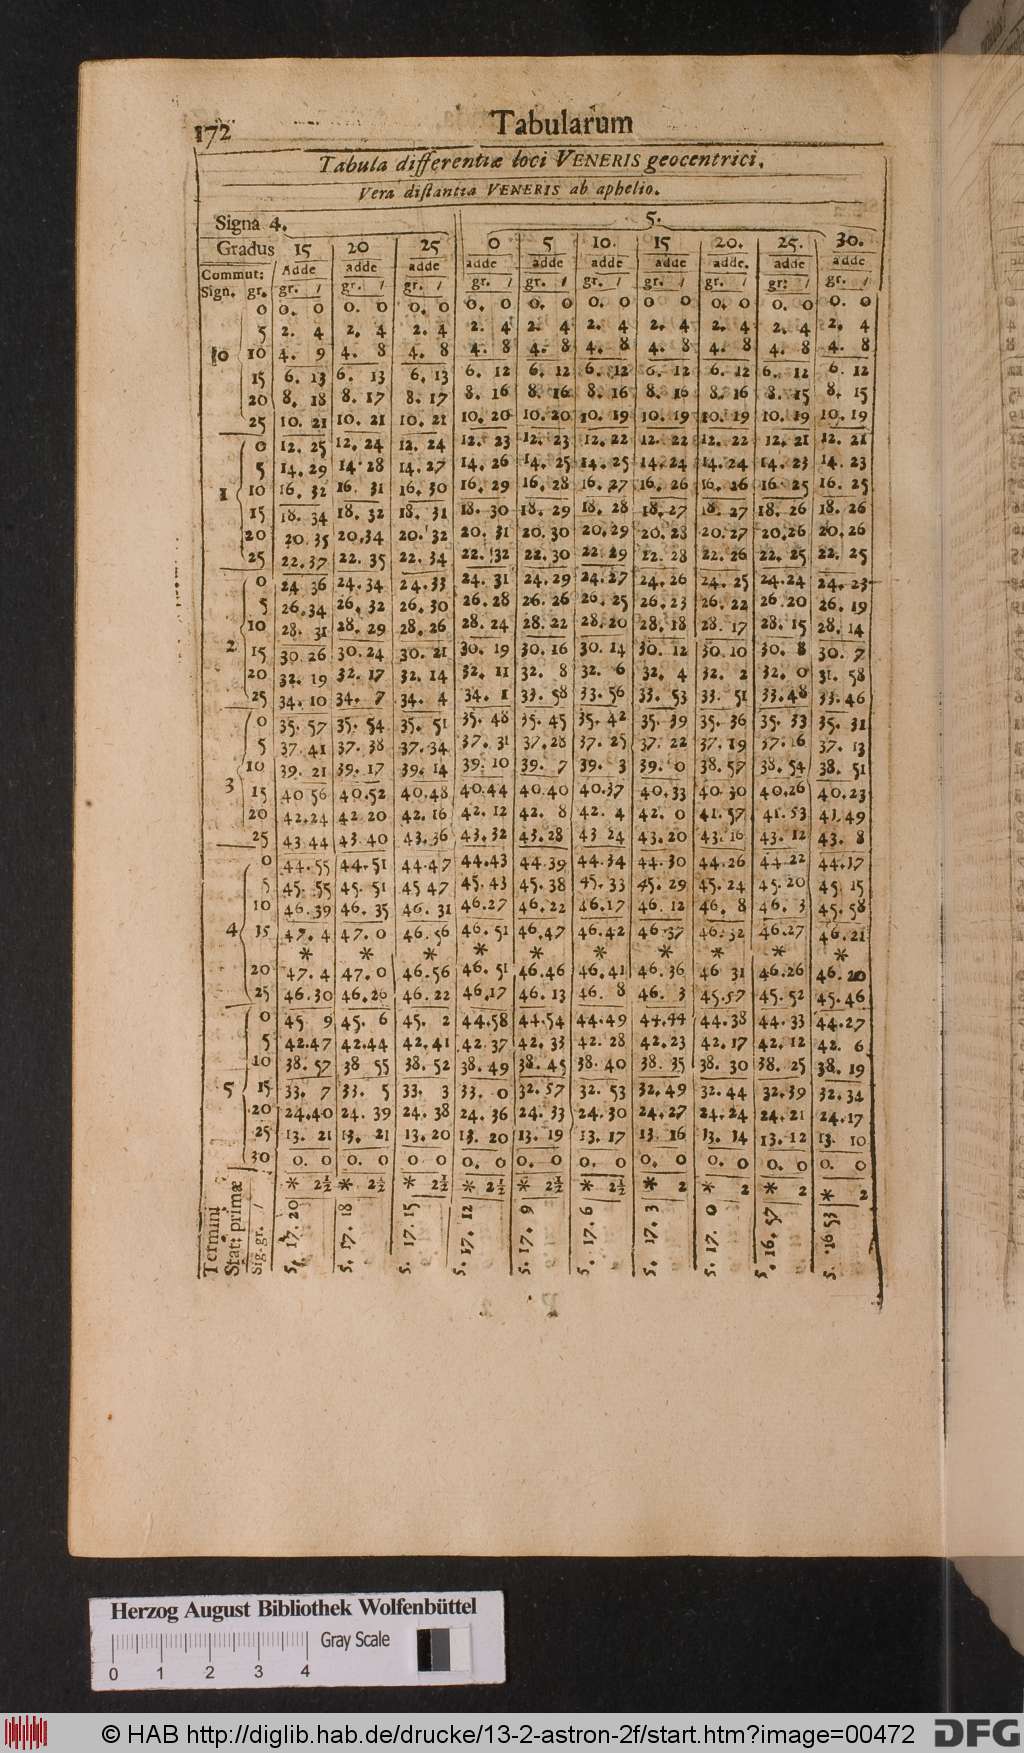 172 Tabularum
Tabula differentiæ loci VENERIS geocentrici.
Vera distantia VENERIS ab aphelio.
Signa 4. 5.
Gradus 15 20 25 0 5 10. 15 20. 25. 30.
Commut: Adde adde adde adde adde adde adde adde. adde adde
Sign. gr. gr. / gr. / gr. / gr. / gr. / gr. / gr. / gr. / gr: / gr. /
0 0. 0 0. 0 0. 0 0. 0 0. 0 0. 0 0 0 0. 0 0. 0 0. 0
5 2. 4 2. 4 2. 4 2. 4 2. 4 2. 4 2. 4 2. 4 2. 4 2. 4
0 10 4. 9 4. 8 4. 8 4. 8 4. 8 4. 8 4. 8 4. 8 4. 8 4. 8
15 6. 13 6. 13 6. 13 6. 12 6. 12 6. 12 6. 12 6. 12 6. 12 6. 12
20 8. 18 8. 17 8. 17 8. 16 8. 16 8. 16 8. 16 8. 16 8. 15 8. 15
25 10. 21 10. 21 10. 21 10. 20 10. 20 10. 19 10. 19 10. 19 10. 19 10. 19
0 12. 25 12. 24 12. 24 12. 23 12. 23 12. 22 12. 22 12. 22 12. 21 12. 21
5 14. 29 14. 28 14. 27 14. 26 14. 25 14. 25 14. 24 14. 24 14. 23 14. 23
1 10 16. 32 16. 31 16. 30 16. 29 16. 28 16. 27 16. 26 16. 26 16. 25 16. 25
15 18. 34 18. 32 18. 31 18. 30 18. 29 18. 28 18. 27 18. 27 18. 26 18. 26
20 20. 35 20. 34 20. 32 20. 31 20. 30 20. 29 20. 28 20. 27 20. 26 20. 26
25 22. 37 22. 35 22. 34 22. 32 22. 30 22 29 22. 28 22. 26 22. 25 22. 25
0 24 36 24. 34 24. 33 24. 31 24. 29 24. 27 24. 26 24. 25 24. 24 24. 23
5 26. 34 26. 32 26. 30 26. 28 26. 26 26. 25 26. 23 26. 22 26. 20 26. 19
10 28. 31 28. 29 28. 26 28. 24 28. 22 28. 20 28. 18 28. 17 28. 15 28. 14
2 15 30. 26 30. 24 30. 21 30. 19 30. 16 30. 14 30. 12 30. 10 30. 8 30. 7
20 32. 19 32. 17 32. 14 32. 11 32. 8 32. 6 32. 4 32. 2 32. 0 31. 58
25 34. 10 34. 7 34. 4 34. 1 33. 58 33. 56 33. 53 33. 51 33. 48 33. 46
0 35. 57 35. 54 35. 51 35. 48 35. 45 35. 42 35. 39 35. 36 35. 33 35. 31
5 37. 41 37. 38 37. 34 37. 31 37. 28 37. 25 37. 22 37. 19 37. 16 37. 13
10 39. 21 39. 17 39. 14 39. 10 39. 7 39. 3 39. 0 38. 57 38. 54 38. 51
3 15 40 56 40. 52 40. 48 40. 44 40. 40 40. 37 40. 33 40. 30 40. 26 40. 23
20 42. 24 42 20 42. 16 42. 12 42. 8 42. 4 42. 0 41. 57 41. 53 41. 49
25 43 44 43 40 43. 36 43. 32 43. 28 43 24 43. 20 43. 16 43. 12 43. 8
0 44. 55 44. 51 44. 47 44. 43 44. 39 44. 34 44. 30 44. 26 44. 22 44. 17
5 45. 55 45. 51 45 47 45. 43 45. 38 45. 33 45. 29 45. 24 45. 20 45 15
10 46. 39 46. 35 46. 31 46. 27 46. 22 46. 17 46. 12 46. 8 46. 3 45. 58
4 15 47. 4 47. 0 46. 56 46. 51 46. 47 46. 42 46 37 46. 32 46. 27 46. 21
* * * * * * * * * *
20 47. 4 47. 0 46. 56 46. 51 46. 46 46. 41 46. 36 46 31 46. 26 46. 20
25 46. 30 46. 26 46. 22 46. 17 46. 13 46. 8 46. 3 45. 57 45. 52 45. 46
0 45 9 45. 6 45. 2 44. 58 44. 54 44. 49 44. 44 44. 38 44. 33 44. 27
5 42. 47 42. 44 42. 41 42 37 42. 33 42. 28 42. 23 42. 17 42. 12 42. 6
10 38. 57 38 55 38. 52 38. 49 38. 45 38. 40 38. 35 38. 30 38. 25 38. 19
5 15 33. 7 33. 5 33. 3 33. 0 32. 57 32. 53 32. 49 32. 44 32. 39 32. 34
20 24. 40 24. 39 24. 38 24. 36 24. 33 24. 30 24. 27 24. 24 24. 21 24. 17
25 13. 21 13. 21 13. 20 13. 20 13. 19 13. 17 13. 16 13. 14 13. 12 13. 10
30 0. 0 0. 0 0 0 0. 0 0. 0 0. 0 0. 0 0. 0 0. 0 0. 0
* 2½ * 2½ * 2½ * 2½ * 2½ * 2½ * 2 * 2 * 2 * 2
Termini
Stat: primæ
Sig. gr. /
5. 17. 20 5. 17. 18 5. 17. 15 5. 17. 12 5. 17. 9 5. 17. 6 5. 17. 3 5. 17. 0 5. 16. 57 5. 16 53
Herzog August Bibliothek Wolfenbüttel
Gray Scale
0 1 2 3 4
© HAB http://diglib.hab.de/drucke/13-2-astron-2f/start.htm?image=00472 DFG